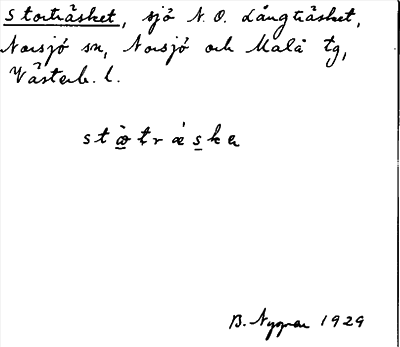 Storträsket, sjö N.O. Långträsket,
Norsjö sn, Norsjö och Malå tg,
Västerb. l.
stò̲trǽs̲ka
B. Nygren 1929